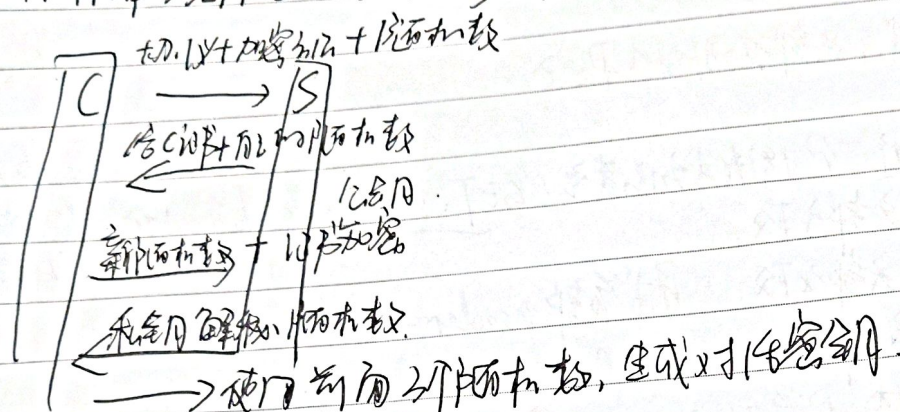 协议+加密方法+1随机数
C S
给C证书+自己的随机数
公钥
新随机数+证书加密
私钥解揭小随机数
使用前面3个随机数,生成对话密钥